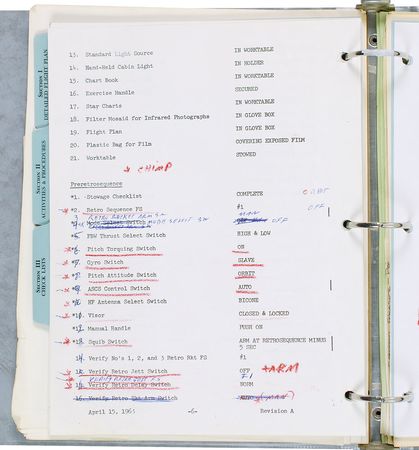 SECTION I
DETAILED FLIGHT PLAN
SECTION II
ACTIVITIES & PROCEDURES
SECTION III
CHECK LISTS
13. Standard Light Source IN WORKTABLE
14. Hand-Held Cabin Light IN HOLDER
15. Chart Book IN WORKTABLE
16. Exercise Handle SECURED
17. Star Charts IN WORKTABLE
18. Filter Mosaid for Infrared Photographs IN GLOVE BOX
19. Flight Plan IN GLOVE BOX
20. Plastic Bag for Film COVERING EXPOSED FILM
21. Worktable STOWED
CHIMP
Preretrosequence
*1. Stowage Checklist COMPLETE ORBIT
*2. Retro Sequence FS #1 OFF
RETRO ROCKET ARM SW MAN
Mode Select Switch MODE SELECT SW OFF
FBW Thrust Select Switch HIGH & LOW
Pitch Torquing Switch ON
Gyro Switch SLAVE
Pitch Attitude Switch ORBIT
ASCS Control Switch AUTO
HF Antenna Select Switch BICONE
*10. Visor CLOSED & LOCKED
Manual Handle PUSH ON
Squib Switch ARM AT RETROSEQUENCE MINUS
5 SEC
14. Verify No's 1, 2, and 3 Retro Rkt FS #1
Verify Retro Jett Switch OFF → ARM
Verify Retro Delay Switch NORM
16. Verify Retro Rkt Arm Switch AUTO MAN
April 15, 1963 -6- Revision A